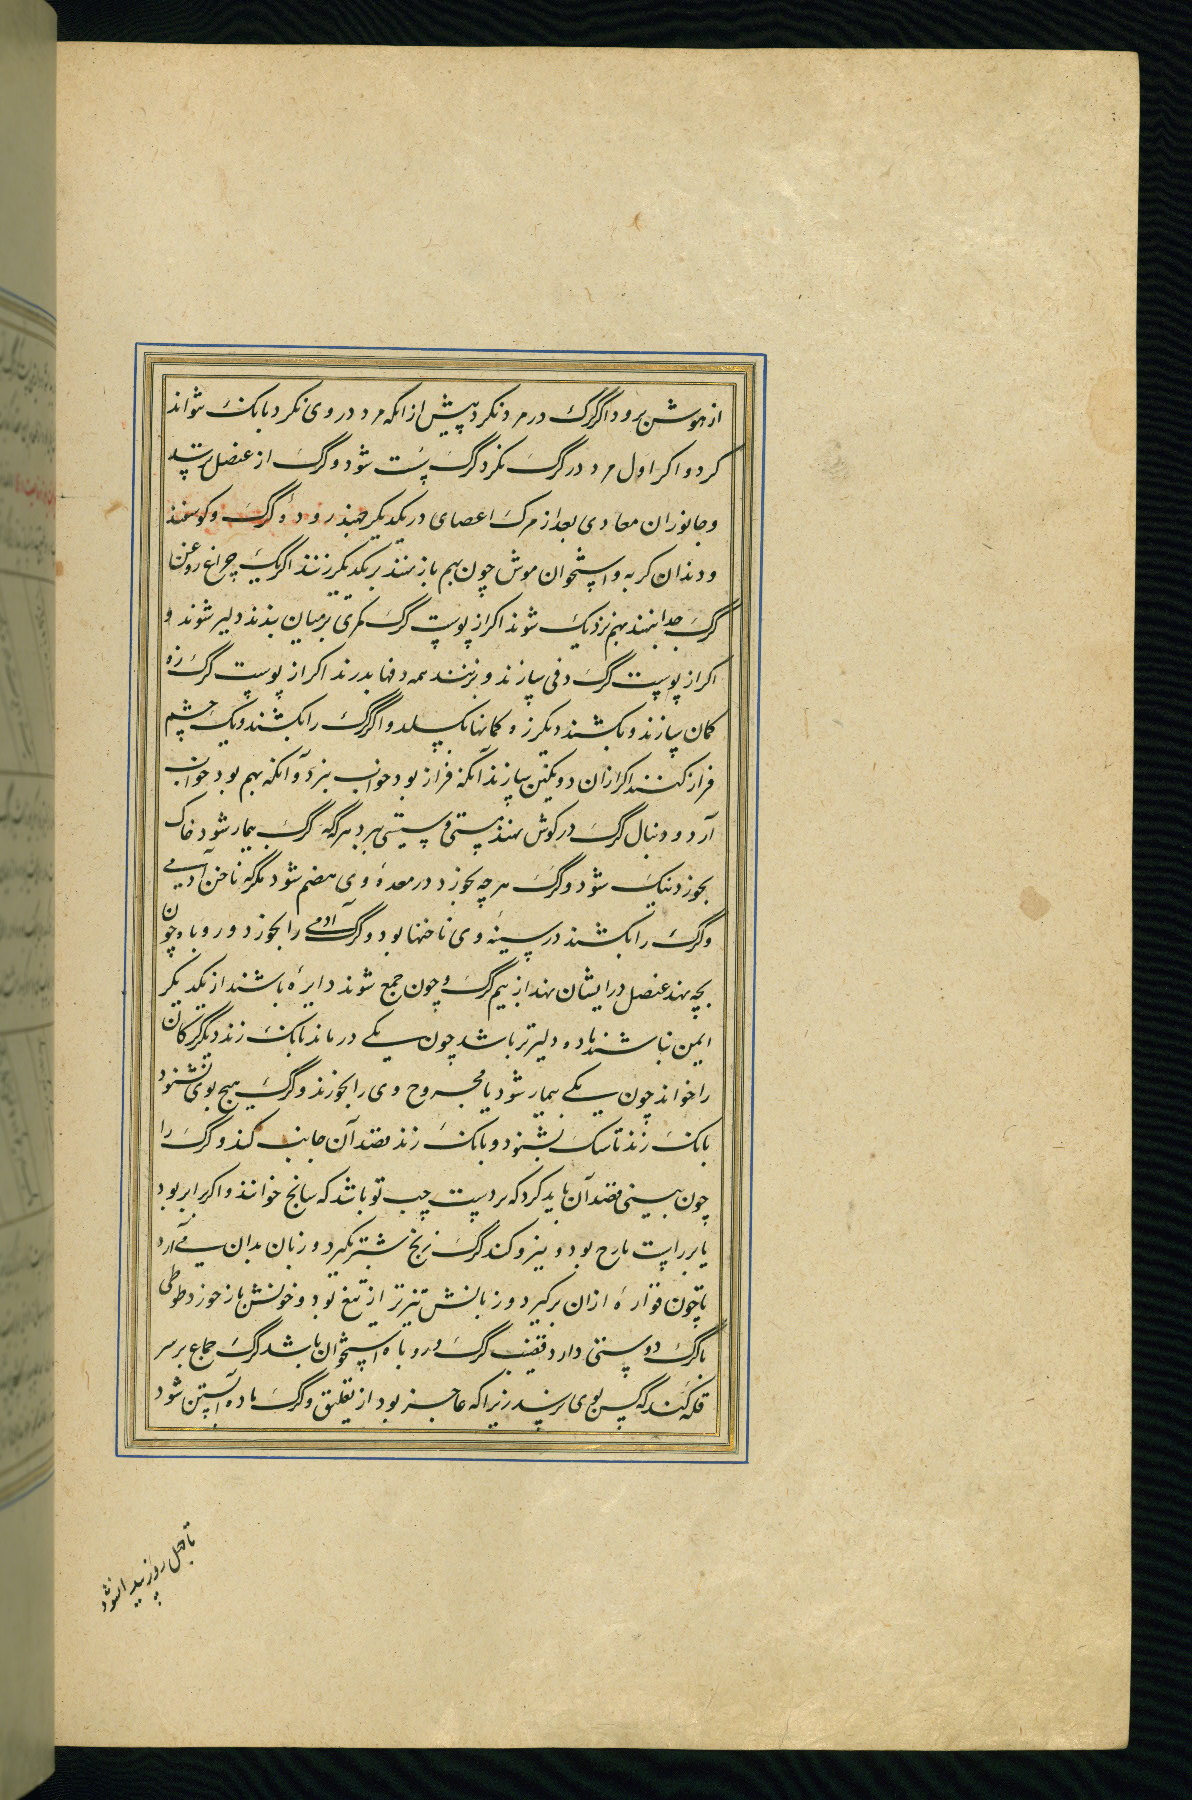 از هوش برود اگر گرگ در مرد نگرد پیش از آنکه مرد در وی نگرد بانک نتواند
کرد و اکر اول مرد در گرگ نکرد گرگ پست شود و گرگ از عنصل بترسد
و جانوران معادی بعد از مرگ اعصای در یکدیگر جهند روده گرگ و کوسفند
و دندان کربه و استخوان موش چون بهم باز نهند بر یکدیگر زنند اگر یک چراغ روغن
گرگ جدا بنهند بهم نزدیک شوند اکر از پوست گرگ کمری بر میان بندند دلیر شوند و
اکر از پوست گرگ دفی سازند و بزنند همه دفها بدرند اکر از پوست گرگ زه
کمان سازند و بکشند دیگر زه کمانها بگسلد و اگر گرگ را بکشند و یک چشم
فراز کنند اکر از آن دو نگین سازند آنکه فراز بود خواب ببرد و آنکه بهم بود خواب
آرد و دنبال گرگ در کوش نهند مستی و سستی ببرد هرگه گرگ بیمار شود خاک
بخورد نیک شود و گرگ هر چه بخورد در معده وی هضم شود مگر ناخن آدمی
و گرگ را بکشند در سینه وی ناخنها بود و گرگ آدمی را بخورد و روباه چون
بچه نهد عنصل در ایشان نهد از بیم گرگ و چون جمع شوند دایره باشند از یکدیگر
ایمن نباشند ماده دلیرتر باشد چون یکی در ماند بانک زند دیگر گرگان
را خواند چون یکی بیمار شود یا مجروح وی را بخورند و گرگ هیچ بوی نشنود
بانک زند تا سک بشنود و بانک زند قصد آن جانب کند و گرگ را
چون ببینی قصد آن باید کرد که بر دست چپ تو باشد که سانح خوانند و اکر برابر بود
یا بر راست بارح بود و نیزو کند گرگ زنخ شتر بگیرد و زبان بدان می آرد
تا چون فواره از آن برگیرد و زبانش تیزتر از تیغ بود و خونش باز خورد طوطی
با گرگ دوستی دارد قضیب گرگ و روباه استخوان باشد گرگ جماع بر سر
قله کند که کس بوی نرسد زیرا که عاجز بود از تعلیق و گرگ ماده آبستن شود
تا چهل روز پیدا نشود